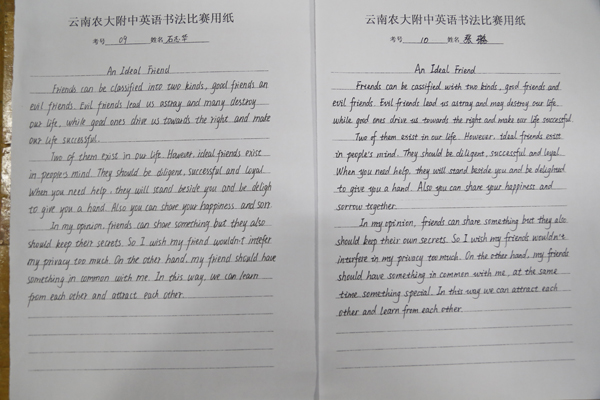 云南农大附中英语书法比赛用纸
考号 09 姓名 石志华
An Ideal Friend
Friends can be classified into two kinds, good friends an
evil friends. Evil friends lead us astray and many destroy
our life, while good ones drive us towards the right and make
our life successful.
Two of them exist in our life. However, ideal friends exist
in people's mind. They should be diligent, successful and loyal.
When you need help, they will stand beside you and be deligh
to give you a hand. Also you can share your happiness and sorr
In my opinion, friends can share something but they also
should keep their secrets. So I wish my friend wouldn't intefer
my privacy too much. On the other hand, my friend should have
something in common with me. In this way, we can learn
from each other and attract each other.
云南农大附中英语书法比赛用纸
考号 10 姓名
An Ideal Friend
Friends can be cassified with two kinds, good friends and
evil friends. Evil friends lead us astray and may destroy our life,
while good ones drive us towards the right and make our life successful.
Two of them exist in our life. However, ideal friends exist
in people's mind. They should be diligent, successful and loyal.
When you need help, they will stand beside you and be delighted
to give you a hand. Also you can share your happiness and
sorrow together.
In my opinion, friends can share something but they also
should keep their own secrets. So I wish my friends wouldn't
interfere in my privacy too much. On the other hand, my friends
should have something in common with me, at the same
time something special. In this way we can attract each
other and learn from each other.